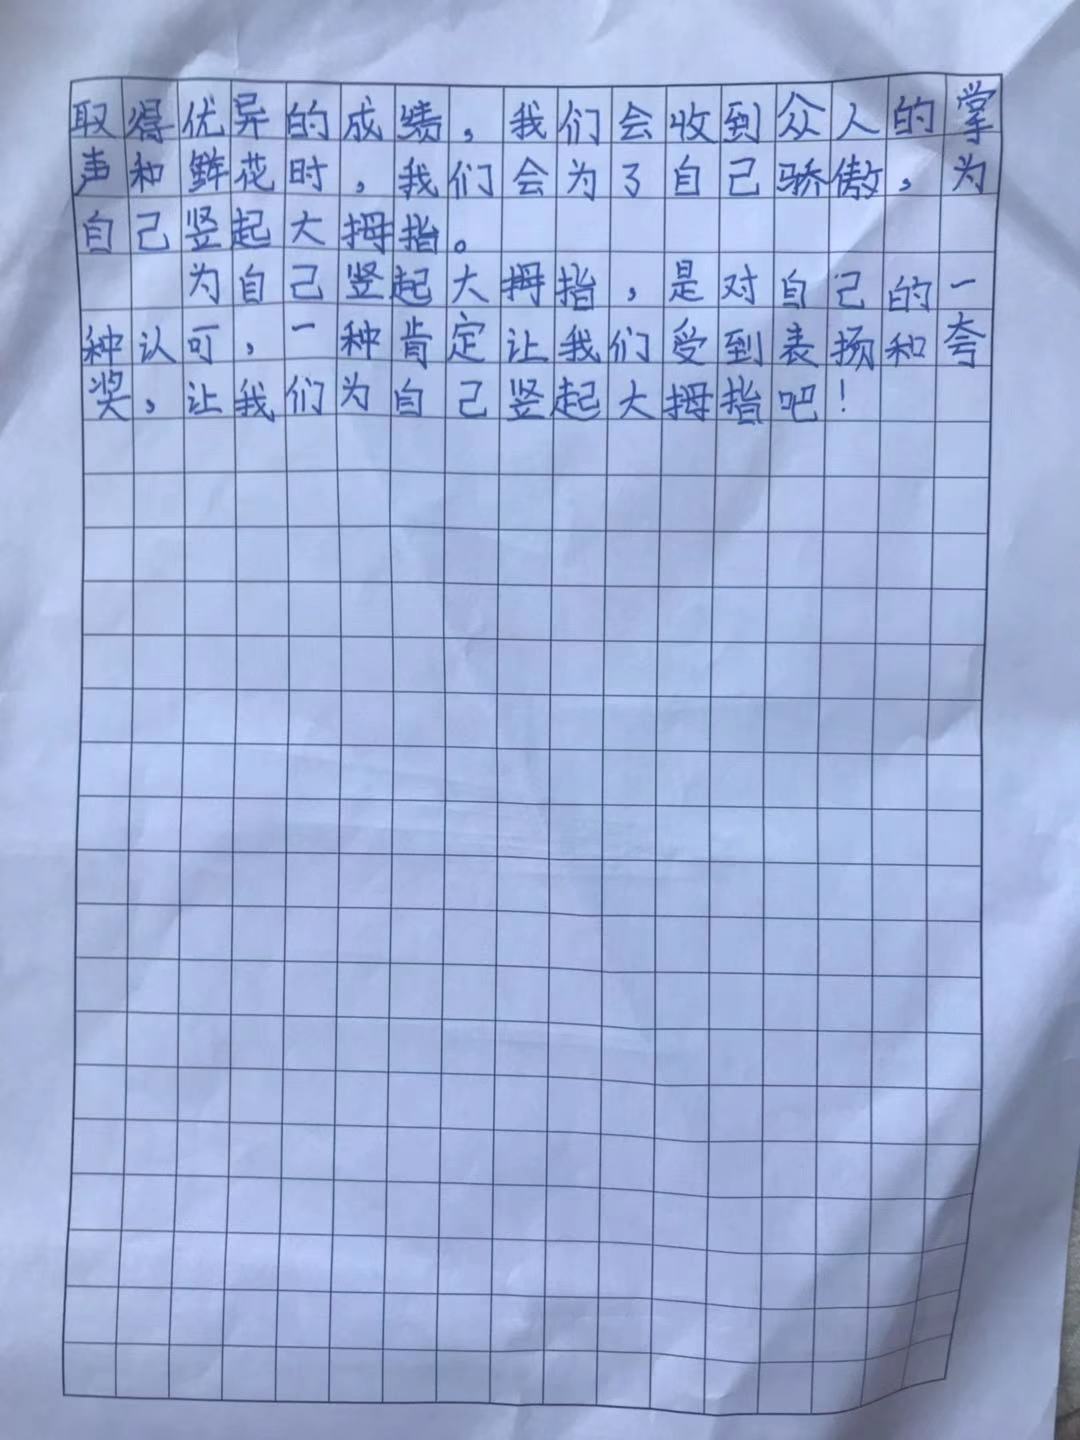 取得优异的成绩，我们会收到众人的掌
声和鲜花时，我们会为了自己骄傲，为
自己竖起大拇指。
为自己竖起大拇指，是对自己的一
种认可，一种肯定让我们受到表扬和夸
奖，让我们为自己竖起大拇指吧！